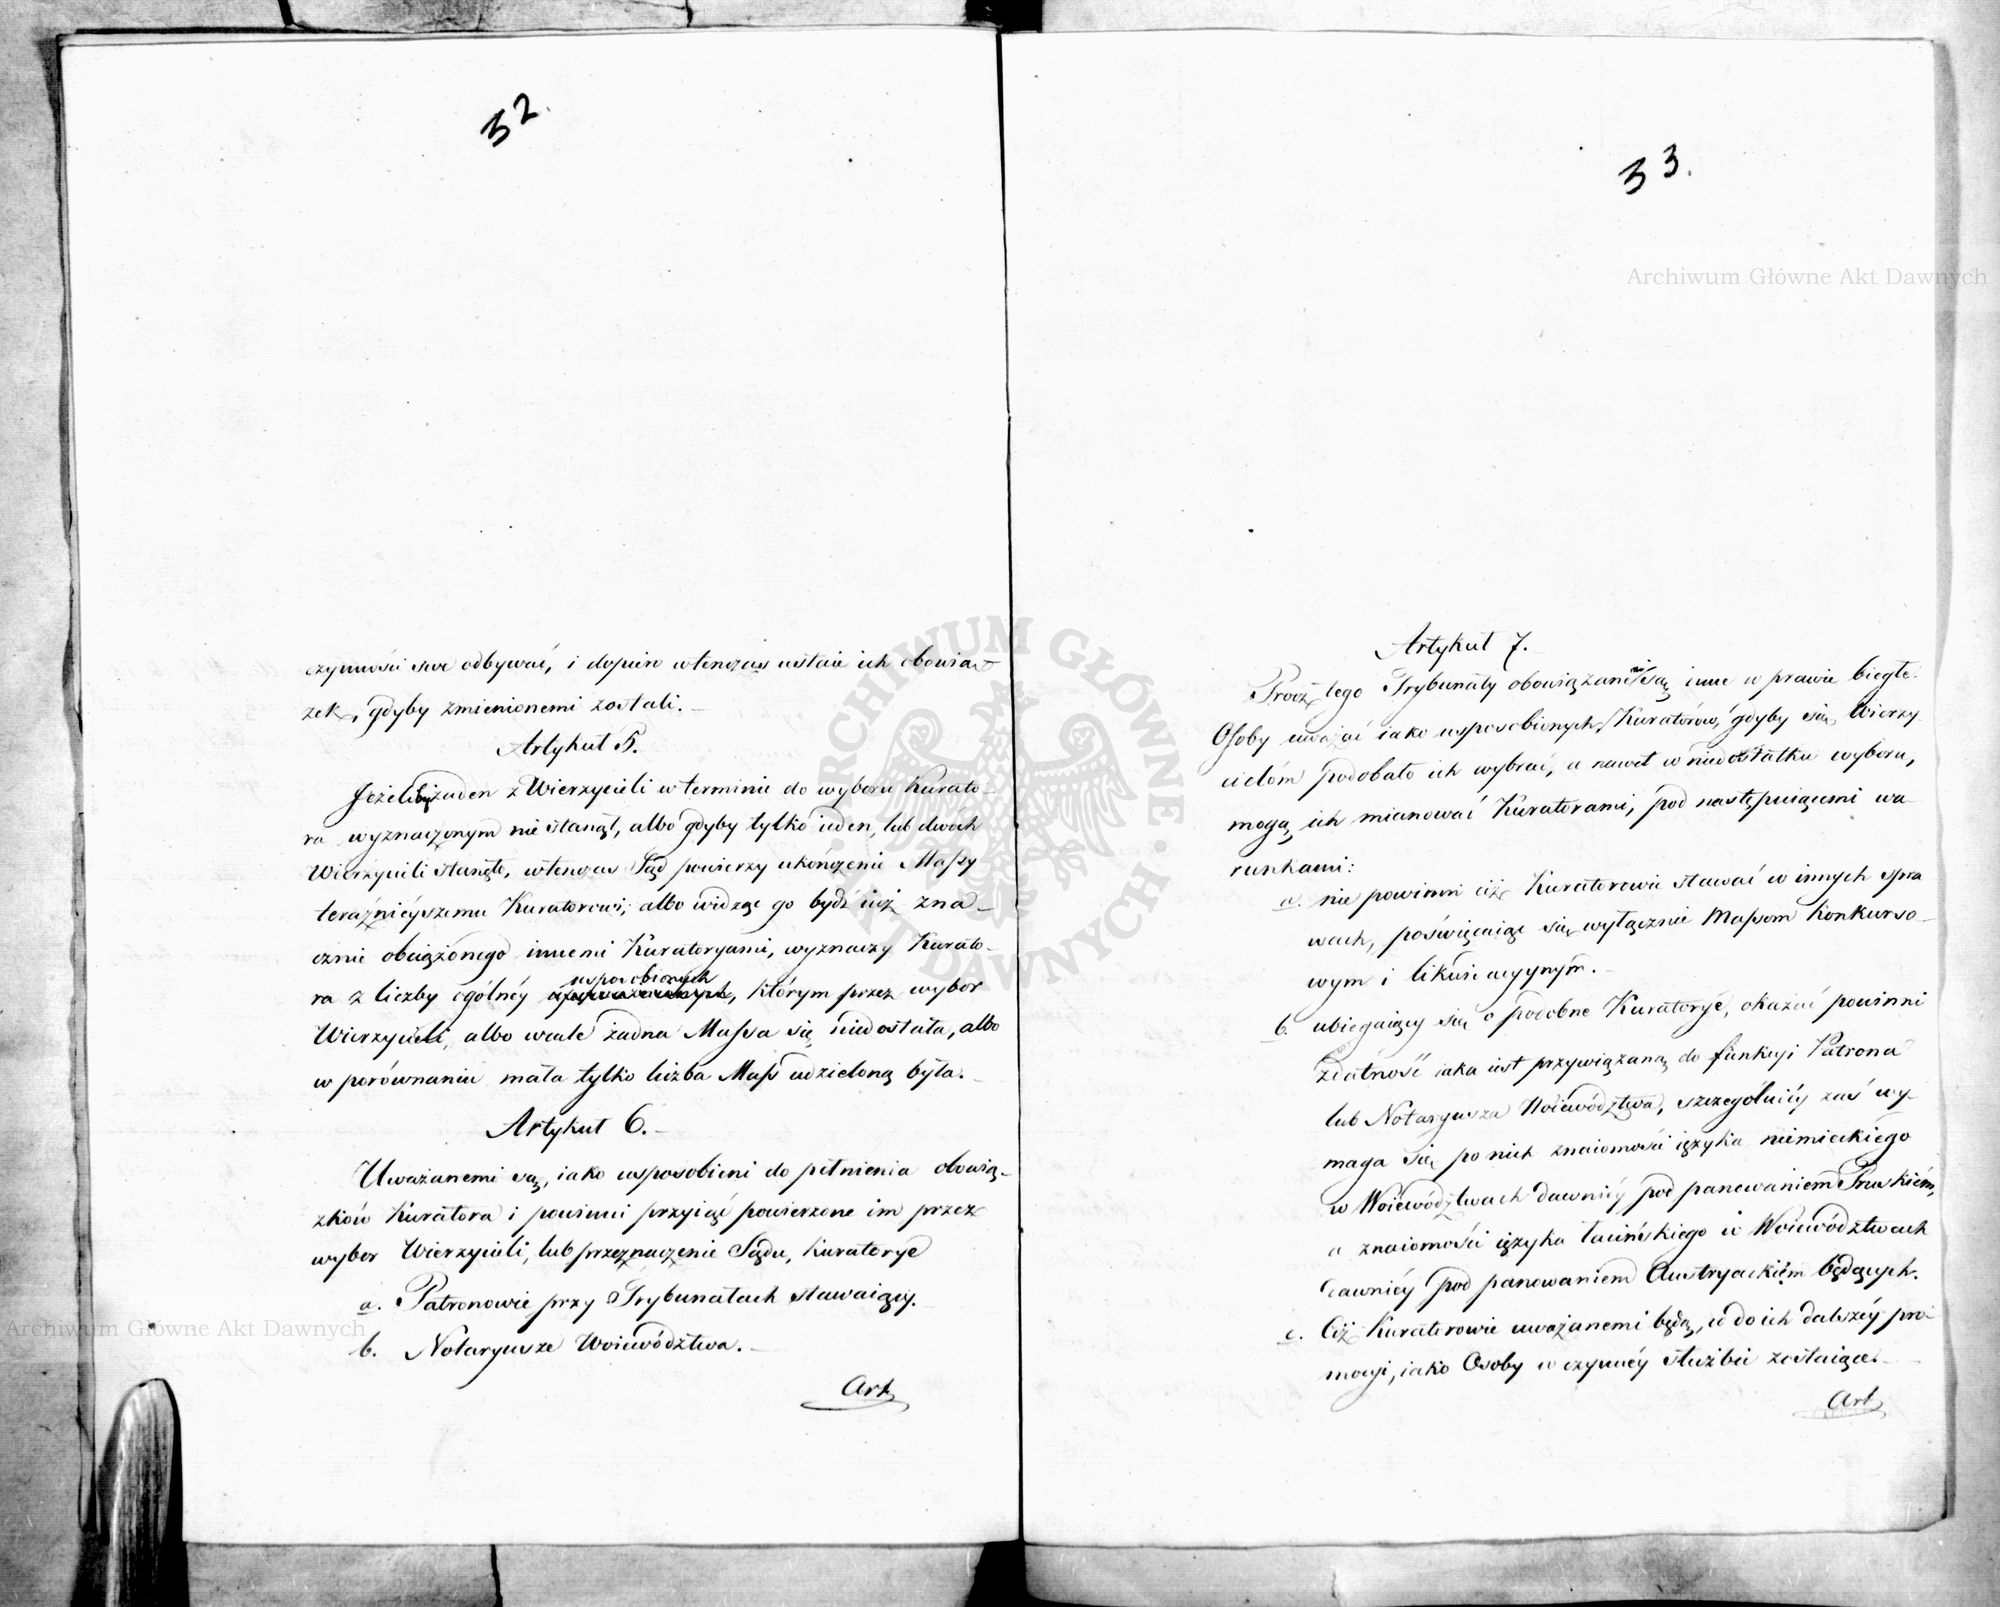 32.
czynności swe odbywać, i dopiero wtenczas ustaie ich obowią
zek, gdyby zmienionemi zostali.
Artykuł 5.
Jeżeliby żaden z Wierzycieli w terminie do wyboru Kurato-
ra wyznaczonym nie stanął, albo gdyby tylko ieden, lub dwóch
Wierzycieli stanęło, wtenczas Sąd powierzy ukończenie Massy
teraźnieyszemu Kuratorowi; albo widząc go bydź iuż zna-
cznie obciążonego innemi Kuratoryami, wyznaczy Kurato-
ra z liczby ogólnéy usposobionych, którym przez wybor
Wierzycieli, albo wcale żadna Massa się niedostała, albo
w porównaniu mała tylko liczba Mass udzieloną była.
Artykuł 6.
Uważanemi są, iako usposobieni do pełnienia obowią-
zków Kuratora i powinni przyiąć powierzone im przez
wybor Wierzycieli, lub przeznaczenie Sądu, Kuratorye
a. Patronowie przy Trybunałach stawaiący.
b. Notaryusze Woiewództwa.
Art
33.
Artykuł 7.
Prócz tego Trybunały obowiązanemi są inne w prawie biegłe
Osoby uważać iako usposobionych Kuratorów, gdyby się Wierzy-
cielóm podobało ich wybrać, a nawet w niedostatku wyboru,
mogą ich mianować Kuratorami, pod następuiącemi wa-
runkami:
a. nie powinni ciż Kuratorowie stawać w innych spra
wach, poświęcaiąc się wyłącznie Massom Konkurso-
wym i likwidacyynym.
b. ubiegaiący się o podobne Kuratorye, okazać powinni
zdatność iaka iest przywiązaną do funkcyi Patrona
lub Notaryusza Woiewództwa, szczególniey zaś wy-
maga się po nich znaiomości ięzyka niemieckiego
w Woiewództwach dawniéy pod panowaniem Pruskiém,
a znaiomości ięzyka łacińskiego w Woiewództwach
dawniéy pod panowaniem Austryackiém będących.
c. Ciż Kuratorowie uważanemi będą, co do ich dalszéy pro-
mocyi, iako Osoby w czynnéy służbie zostaiące.
Art
Archiwum Główne Akt Dawnych
Archiwum Główne Akt Dawnych
ARCHIWUM GŁÓWNE AKT DAWNYCH